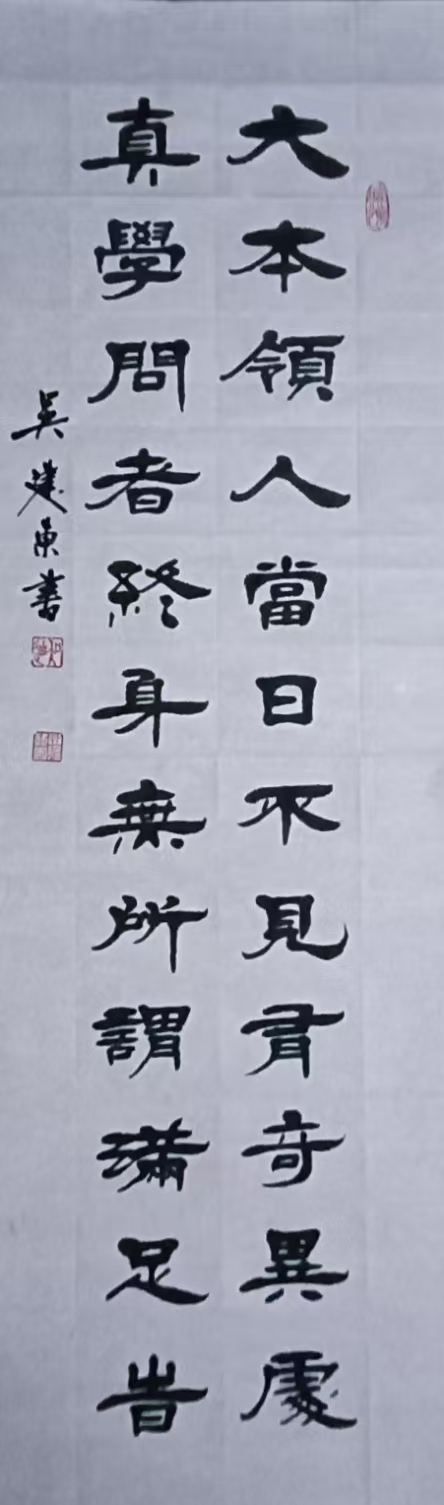 大本領人當日不見有奇異處
真學問者終身無所謂滿足旹
吳建東書